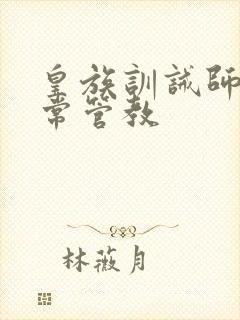 皇族訓誡師
常管教
林薇月